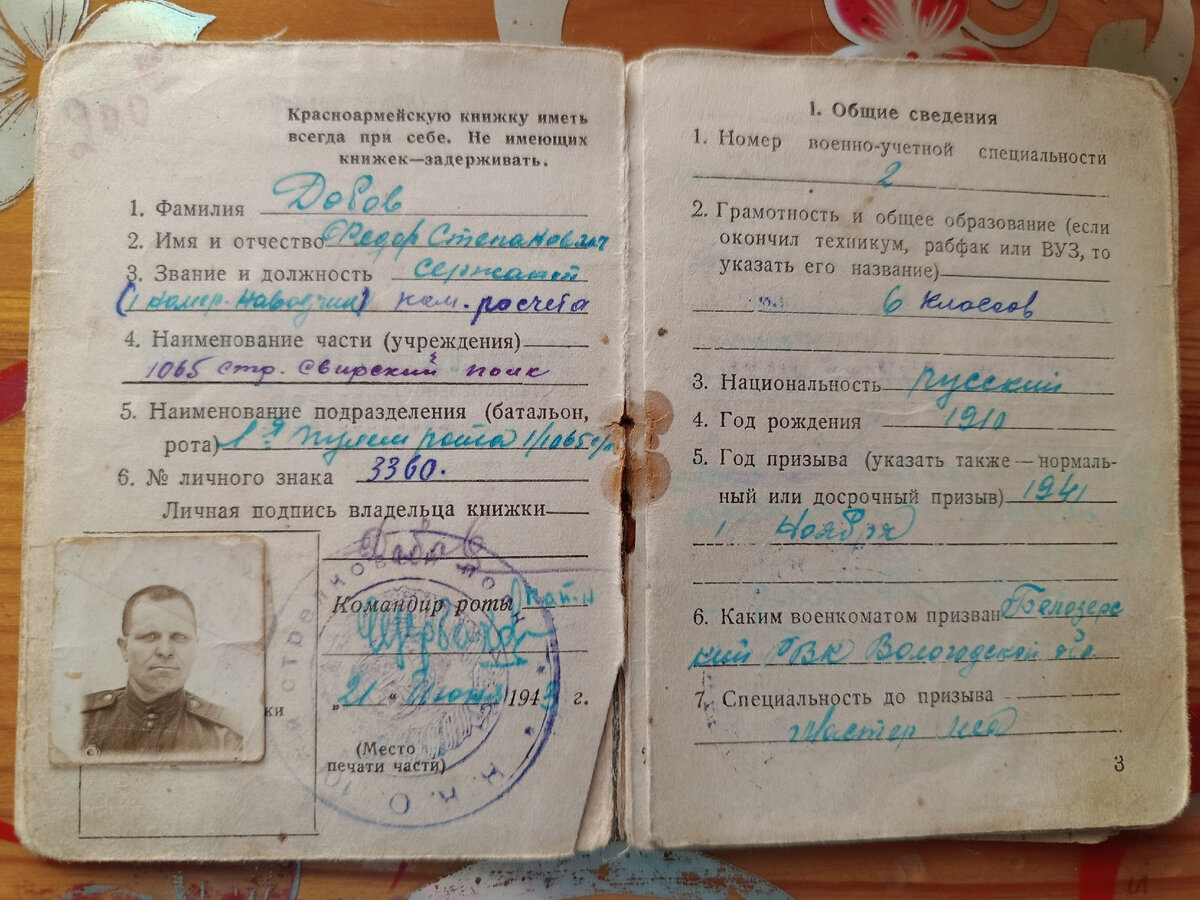 Красноармейскую книжку иметь
всегда при себе. Не имеющих
книжек—задерживать.
1. Фамилия Добов
2. Имя и отчество Федор Степанович
3. Звание и должность сержант
(1 номер. Наводчик) ком. росчета
4. Наименование части (учреждения)
1065 стр. Свирский полк
5. Наименование подразделения (батальон,
рота) 1я пулем рота 1/1065 с/п
6. № личного знака 3360.
Личная подпись владельца книжки
Командир роты Кап-н
21 " Июня 1943 г.
ки
(Место
печати части)
Н. К. О.
I. Общие сведения
1. Номер военно-учетной специальности
2
2. Грамотность и общее образование (если
окончил техникум, рабфак или ВУЗ, то
указать его название)
6 классов
3. Национальность русский
4. Год рождения 1910
5. Год призыва (указать также — нормаль-
ный или досрочный призыв) 1941
1 Ноября
6. Каким военкоматом призван Белозерс
кий РВК Вологодской обл
7. Специальность до призыва
Мастер леса
3